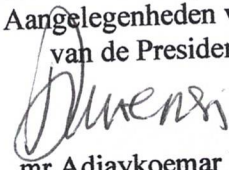 Aangelegenheden v
van de Presiden
mr Adjaykoemar